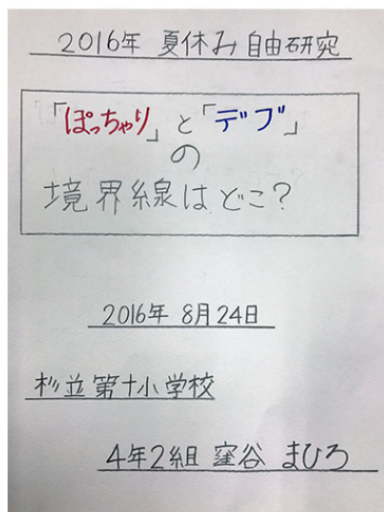 2016年 夏休み 自由研究
「ぽっちゃり」と「デブ」
の
境界線はどこ?
2016年 8月24日
杉並第十小学校
4年2組 窪谷 まひろ